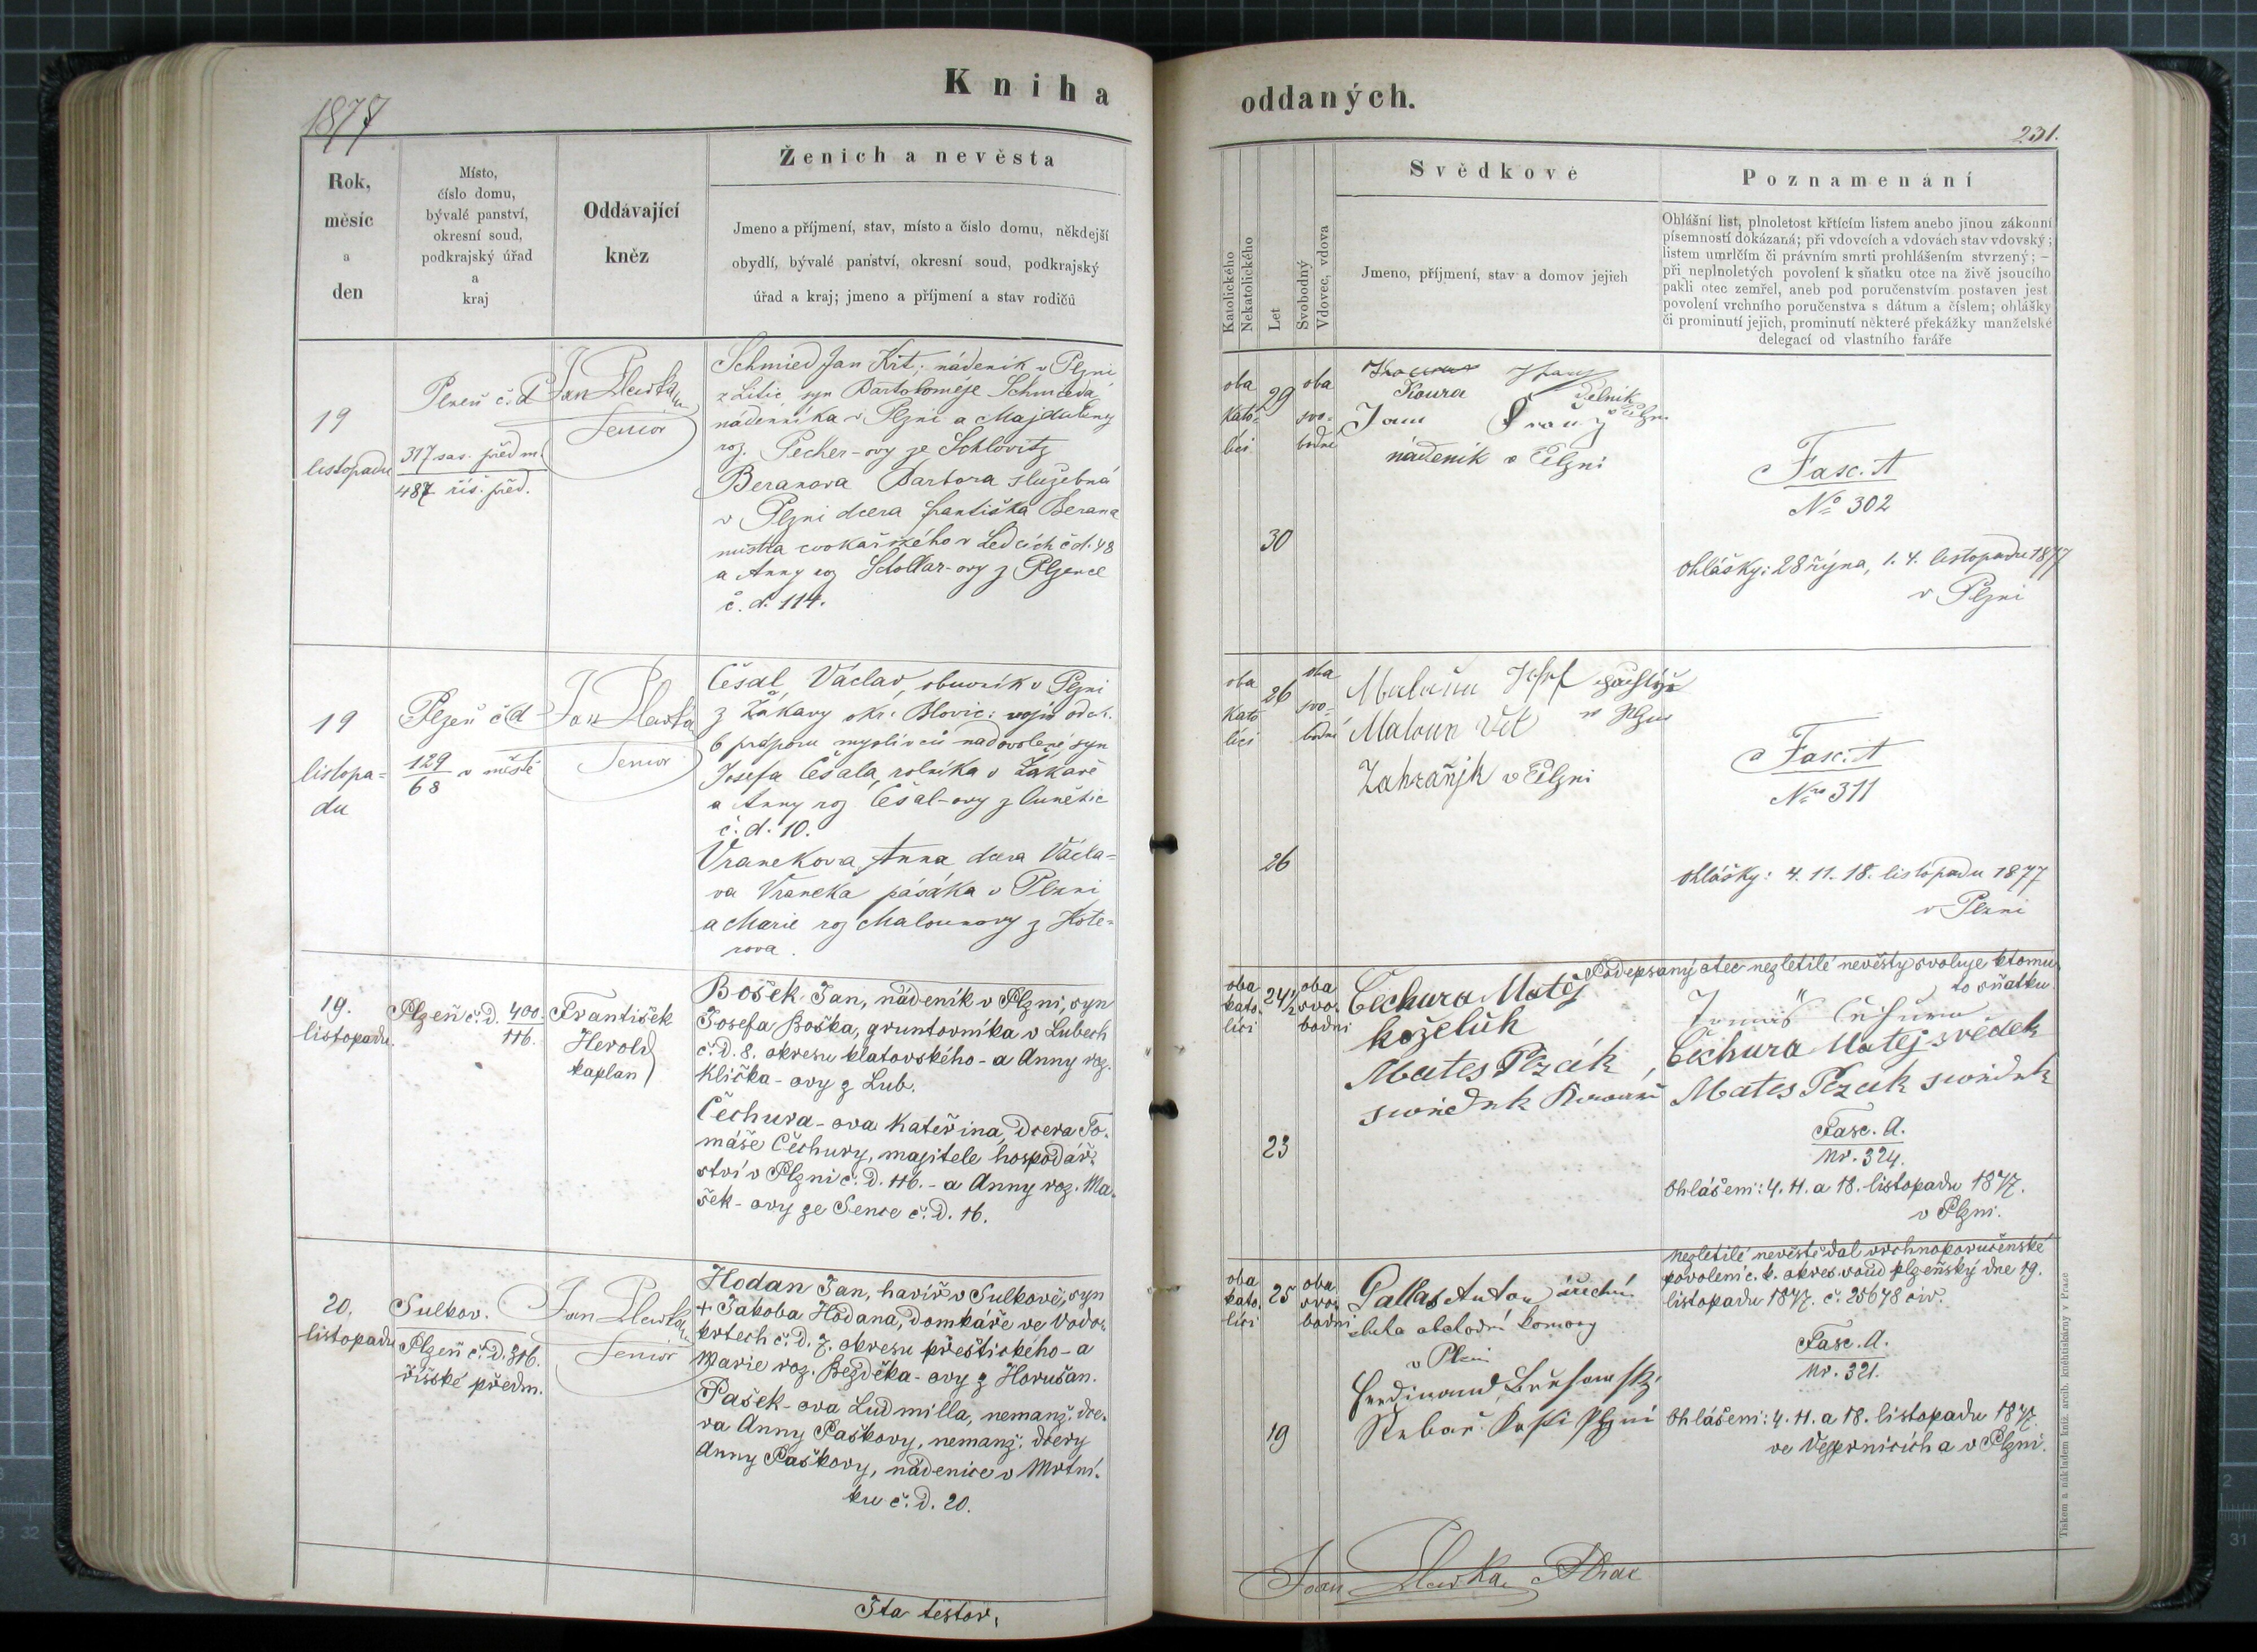 Kniha
1877
Rok,
měsíc
a
den
Místo,
číslo domu,
bývalé panství,
okresní soud,
podkrajský úřad
a
kraj
Oddávající
kněz
Ženich a nevěsta
Jmeno a příjmení, stav, místo a číslo domu, někdejší
obydlí, bývalé panství, okresní soud, podkrajský
úřad a kraj; jmeno a příjmení a stav rodičů
19
listopadu
Plzeň č. d
317 sas. předm.
487 říš. před.
Jan
Senior
Schmied Jan Křt. nádeník v Plzni
z Litic, syn Bartoloměje Schmieda,
nádenníka v Plzni a Majdaleny
roz. Pecher-ovy ze Schlovitz
Beranova Barbora služebná
v Plzni dcera františka Berana
mistra cvokařského v Ledcích č d. 48
a Anny roz Schollar-ovy z Plzence
č. d. 114.
19
listopa=
du
Plzeň č d
129
68 v městě
Jan
Senior
Češal Václav, obuvník v Plzni
z Žákavy okr. Blovic: vojín odch.
6 praporu myslivců na dovolené, syn
Josefa Češala, rolníka v Žákavě
a Anny roz Češal-ovy z
č. d. 10.
Vranekova Anna dcera Václa=
va Vraneka pasáka v Plzni
a Marie roz Malounovy z Kote=
rova.
19.
listopadu.
Plzeň č. d. 400.
116.
František
Herold
kaplan
Bošek Jan, nádeník v Plzni, syn
Josefa Boška, gruntovníka v Lubech
č. d. 8. okresu klatovského - a Anny roz.
Klička-ovy z Lub.
Čechura-ova Kateřina, dcera To-
máše Čechury, majitele hospodář-
ství v Plzni č. d. 116. - a Anny roz. Ma-
šek-ovy ze Sence č. d. 16.
20.
listopadu
Sulkov.
Plzeň č. d. 316.
říšské předm.
Jan
Senior
Hodan Jan, havíř v Sulkově, syn
+ Jakoba Hodana, domkáře ve Vodo-
krtech č. d. 7. okresu přeštického - a
Marie roz. Bezděka-ovy z Horušan.
Pašek-ova Ludmilla, nemanž. dce-
ra Anny Paškovy, nemanž. dcery
Anny Paškovy, nádenice v Mrtní-
ku č. d. 20.
Ita testor.
oddaných.
231.
Katolického
Nekatolického
Let
Svobodný
Vdovec, vdova
Svědkové
Jmeno, příjmení, stav a domov jejich
Poznamenání
Ohlášní list, plnoletost křtícím listem anebo jinou zákonní
písemností dokázaná; při vdovcích a vdovách stav vdovský;
listem umrlčím či právním smrti prohlášením stvrzený; —
při neplnoletých povolení k sňatku otce na živě jsoucího
pakli otec zemřel, aneb pod poručenstvím postaven jest
povolení vrchního poručenstva s dátum a číslem; ohlášky
či prominutí jejich, prominutí některé překážky manželské
delegací od vlastního faráře
oba
kato-
líci
29
oba
svo-
bodni
30
Koura
Jan
nádeník v Plzni
Fasc. A
No 302
ohlášky: 28 října, 1. 4. listopadu 1877
v Plzni
oba
kato
líci
26
oba
svo-
bodni
26
Josef
Maloun Vít
Zahradník v Plzni
Fasc. A
No 311
ohlášky: 4. 11. 18. listopadu 1877
v Plzni
oba
kato-
líci
24 1/2
oba
svo-
bodni
23
Čechura Matěj
koželuh
Mates Pezák
Podepsaný otec nezletilé nevěsty svoluje k tomu-
to sňatku
Čechura Matěj svědek
Mates Pezák
Fasc. A.
Nr. 324.
Ohlášení: 4. 11. a 18. listopadu 1877.
v Plzni.
oba
kato-
líci
25
oba
svo-
bodni
19
Gallas Anton
obchodní komory
v Plzni
Ferdinand
Nezletilé nevěstě dal vrchnoporučenské
povolení c. k. okres. soud plzeňský dne 19.
listopadu 1877. č. 25678 civ.
Fasc. A.
Nr. 321.
Ohlášení: 4. 11. a 18. listopadu 1877.
ve Vejprnicích a v Plzni.
Tiskem a nákladem kníž. arcib. kněhtiskárny v Praze